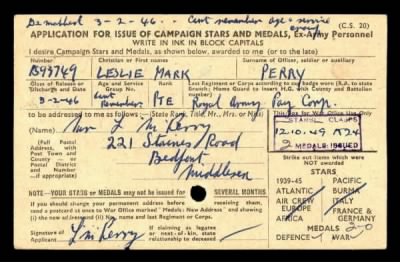 Demobbed 3-2-46 -- Cant remember age & service group
(C.S. 20)
APPLICATION FOR ISSUE OF CAMPAIGN STARS AND MEDALS, Ex-Army Personnel
WRITE IN INK IN BLOCK CAPITALS
I desire Campaign Stars and Medals, as shown below, awarded to me (or to the late)
Number Christian or First names Surname of Officer, soldier or auxiliary
LESLIE MARK PERRY
Age and Service Group No. Rank Last Regiment or Corps according to cap badge worn
3-2-46 Cant Remember PTE Royal Army Pay Corp.
to be addressed to me as follows:—(State Rank, Title, Mr., Mrs. or Miss)
(Name) Mr L M Perry
(Full Postal Address, with Post Town and County — or Postal District and Number if appropriate)
221 Staines Road
Bedfont
Middlesex
This space for War Office Use Only
STARS, CLASPS
12.10.49
2 MEDALS ISSUED
Strike out items which were NOT awarded
STARS
1939-45 PACIFIC
ATLANTIC BURMA
AIR CREW EUROPE ITALY
AFRICA FRANCE & GERMANY
MEDALS 2-0
DEFENCE WAR
NOTE—YOUR STARS or MEDALS may not be issued for SEVERAL MONTHS
If you should change your permanent address before receiving them, send a postcard at once to War Office marked "Medals: New Address" showing (i) the new and old address, (ii) No., name and last Regiment or Corps.
Signature of Applicant L M Perry
If claiming as legatee or next-of-kin, state relationship to deceased